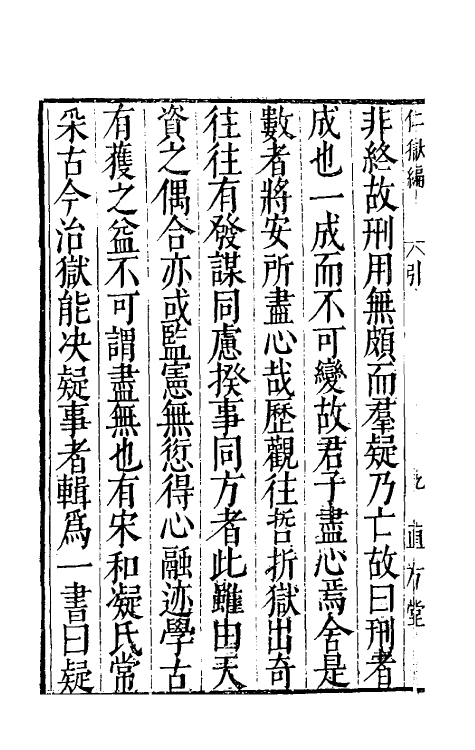 仁獄編 引 直方堂
非終故刑用無頗而羣疑乃亡故曰刑者
成也一成而不可變故君子盡心焉舍是
數者將安所盡心哉歷觀往哲折獄出奇
往往有發謀同慮揆事同方者此雖由天
資之偶合亦或監憲無愆得心融迹學古
有獲之益不可謂盡無也有宋和凝氏常
采古今治獄能决疑事者輯爲一書曰疑